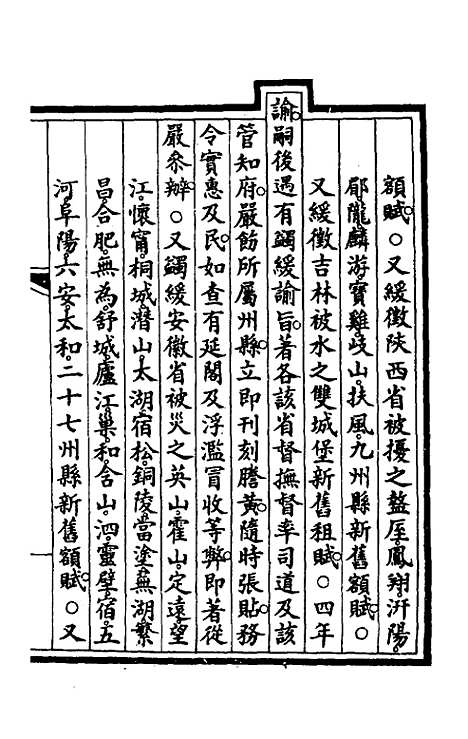 額賦。○又緩徵陝西省被擾之盩厔。鳳翔。汧陽。
郿。隴。麟游。寶雞。岐山。扶風。九州縣新舊額賦。○
又緩徵吉林被水之雙城堡新舊租賦。○四年
諭。嗣後遇有蠲緩諭旨。著各該省督撫督率司道及該
管知府。嚴飭所屬州縣。立即刊刻謄黃。隨時張貼。務
令實惠及民。如查有延閣及浮濫冒收等弊。即著從
嚴參辦。○又蠲緩安徽省被災之英山。霍山。定遠。望
江。懷甯。桐城。潛山。太湖。宿松。銅陵。當塗。蕪湖。繁
昌。合肥。無為。舒城。廬江。巢。和。含山。泗。靈壁。宿。五
河。阜陽。六安。太和。二十七州縣新舊額賦。○又